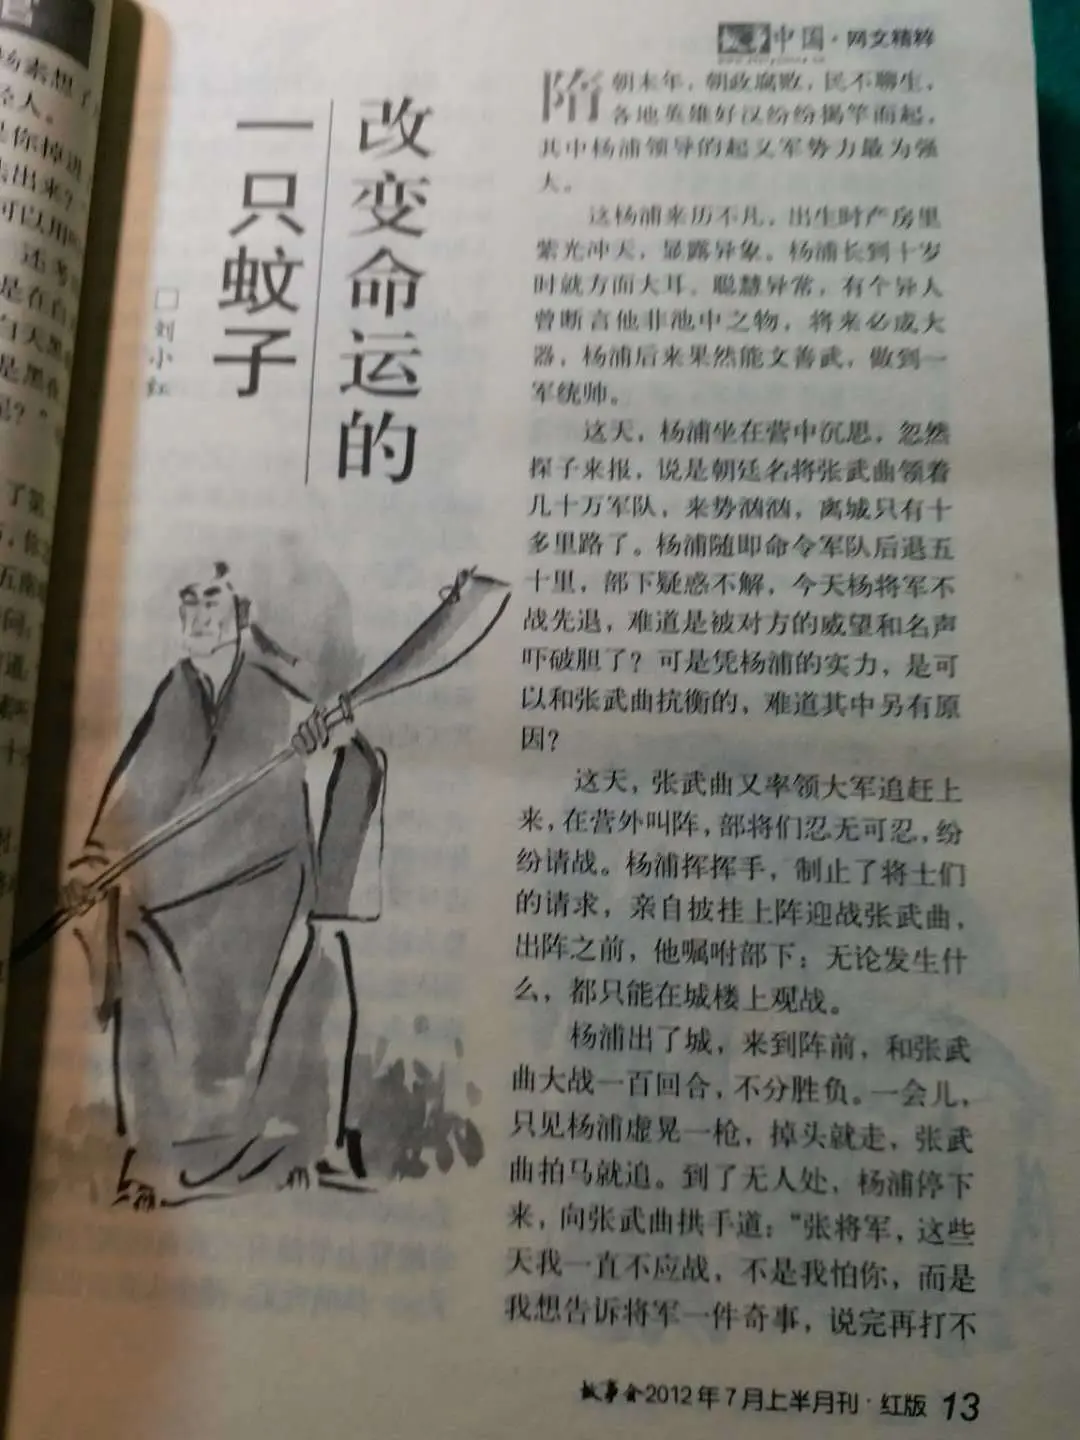 中国·网文精粹
改变命运的
一只蚊子
□刘小红
隋朝末年，朝政腐败，民不聊生，
各地英雄好汉纷纷揭竿而起，
其中杨浦领导的起义军势力最为强
大。
这杨浦来历不凡，出生时产房里
紫光冲天，显露异象。杨浦长到十岁
时就方面大耳，聪慧异常，有个异人
曾断言他非池中之物，将来必成大
器，杨浦后来果然能文善武，做到一
军统帅。
这天，杨浦坐在营中沉思，忽然
探子来报，说是朝廷名将张武曲领着
几十万军队，来势汹汹，离城只有十
多里路了。杨浦随即命令军队后退五
十里，部下疑惑不解，今天杨将军不
战先退，难道是被对方的威望和名声
吓破胆了？可是凭杨浦的实力，是可
以和张武曲抗衡的，难道其中另有原
因？
这天，张武曲又率领大军追赶上
来，在营外叫阵，部将们忍无可忍，纷
纷请战。杨浦挥挥手，制止了将士们
的请求，亲自披挂上阵迎战张武曲，
出阵之前，他嘱咐部下：无论发生什
么，都只能在城楼上观战。
杨浦出了城，来到阵前，和张武
曲大战一百回合，不分胜负。一会儿，
只见杨浦虚晃一枪，掉头就走，张武
曲拍马就追。到了无人处，杨浦停下
来，向张武曲拱手道：“张将军，这些
天我一直不应战，不是我怕你，而是
我想告诉将军一件奇事，说完再打不
故事会2012年7月上半月刊·红版 13